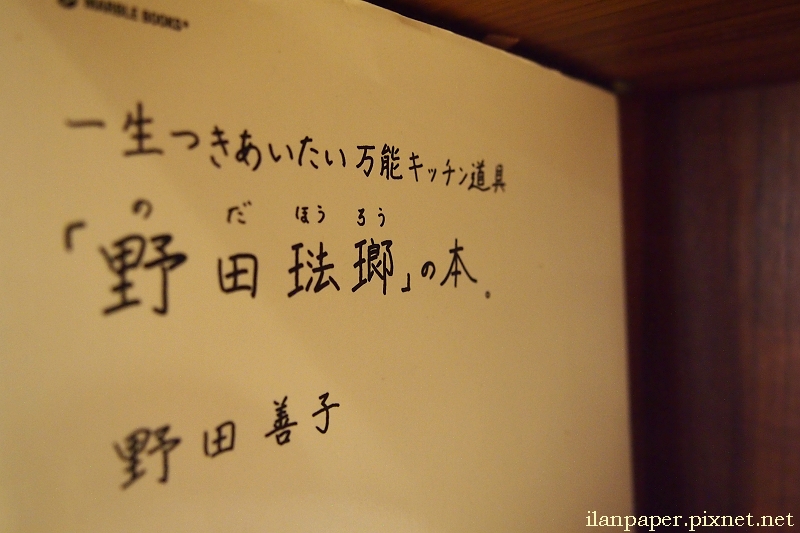 MARBLE BOOKS
一生つきあいたい万能キッチン道具
の だ ほう ろう
「野田琺瑯」の本。
野田善子
ilanpaper.pixnet.net